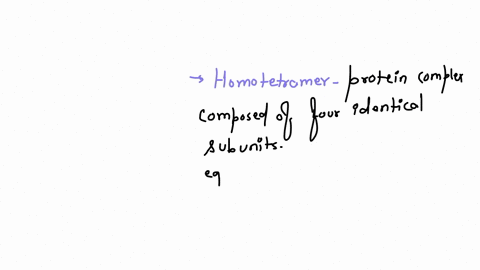 → Homotetramer - protein complex
composed of four identical
subunits.
eg